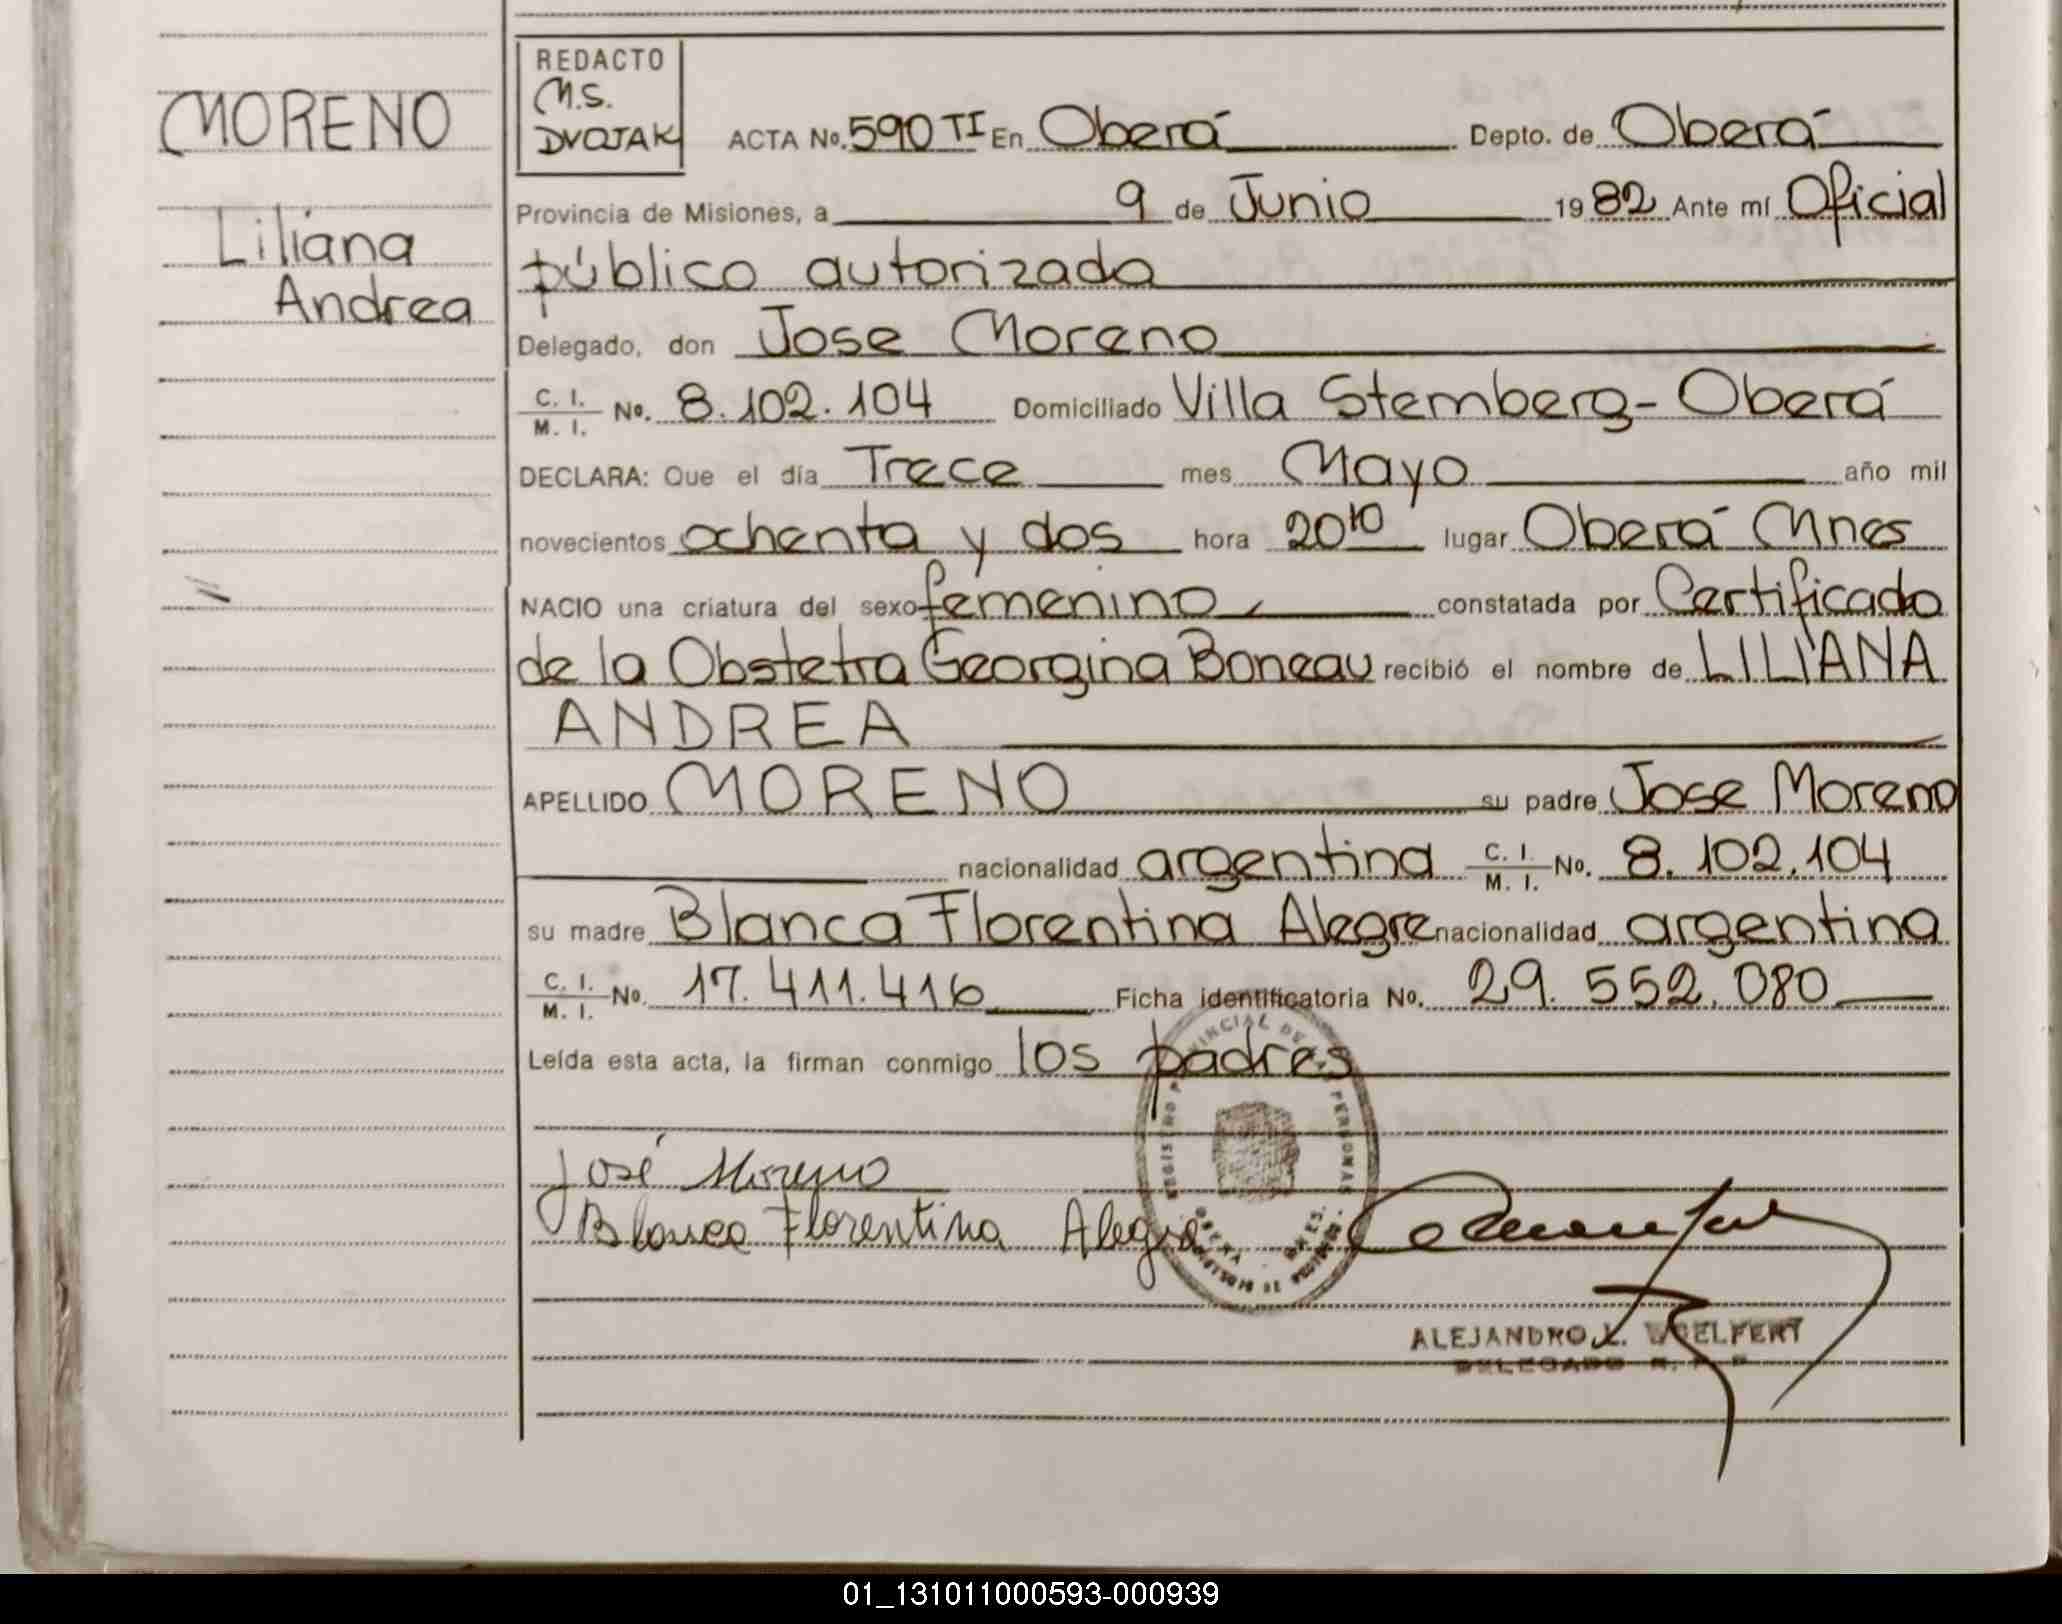 MORENO
Liliana
Andrea
REDACTO
M.S.
DVOJAK
ACTA No. 590 TI En Oberá Depto. de Oberá
Provincia de Misiones, a 9 de Junio 1982 Ante mí Oficial
público autorizado
Delegado, don Jose Moreno
C. I. / M. I. No. 8.102.104 Domiciliado Villa Stemberg - Oberá
DECLARA: Que el día Trece mes Mayo año mil
novecientos ochenta y dos hora 20¹⁰ lugar Oberá Mnes
NACIO una criatura del sexo femenino constatada por Certificado
de la Obstetra Georgina Boneau recibió el nombre de LILIANA
ANDREA
APELLIDO MORENO su padre Jose Moreno
nacionalidad argentina C. I. / M. I. No. 8.102.104
su madre Blanca Florentina Alegre nacionalidad argentina
C. I. / M. I. No. 17.411.416 Ficha identificatoria No. 29.552.080
Leída esta acta, la firman conmigo los padres
José Moreno
Blanca Florentina Alegre
ALEJANDRO L. WOELFERT
DELEGADO R. P. P.
01_131011000593-000939